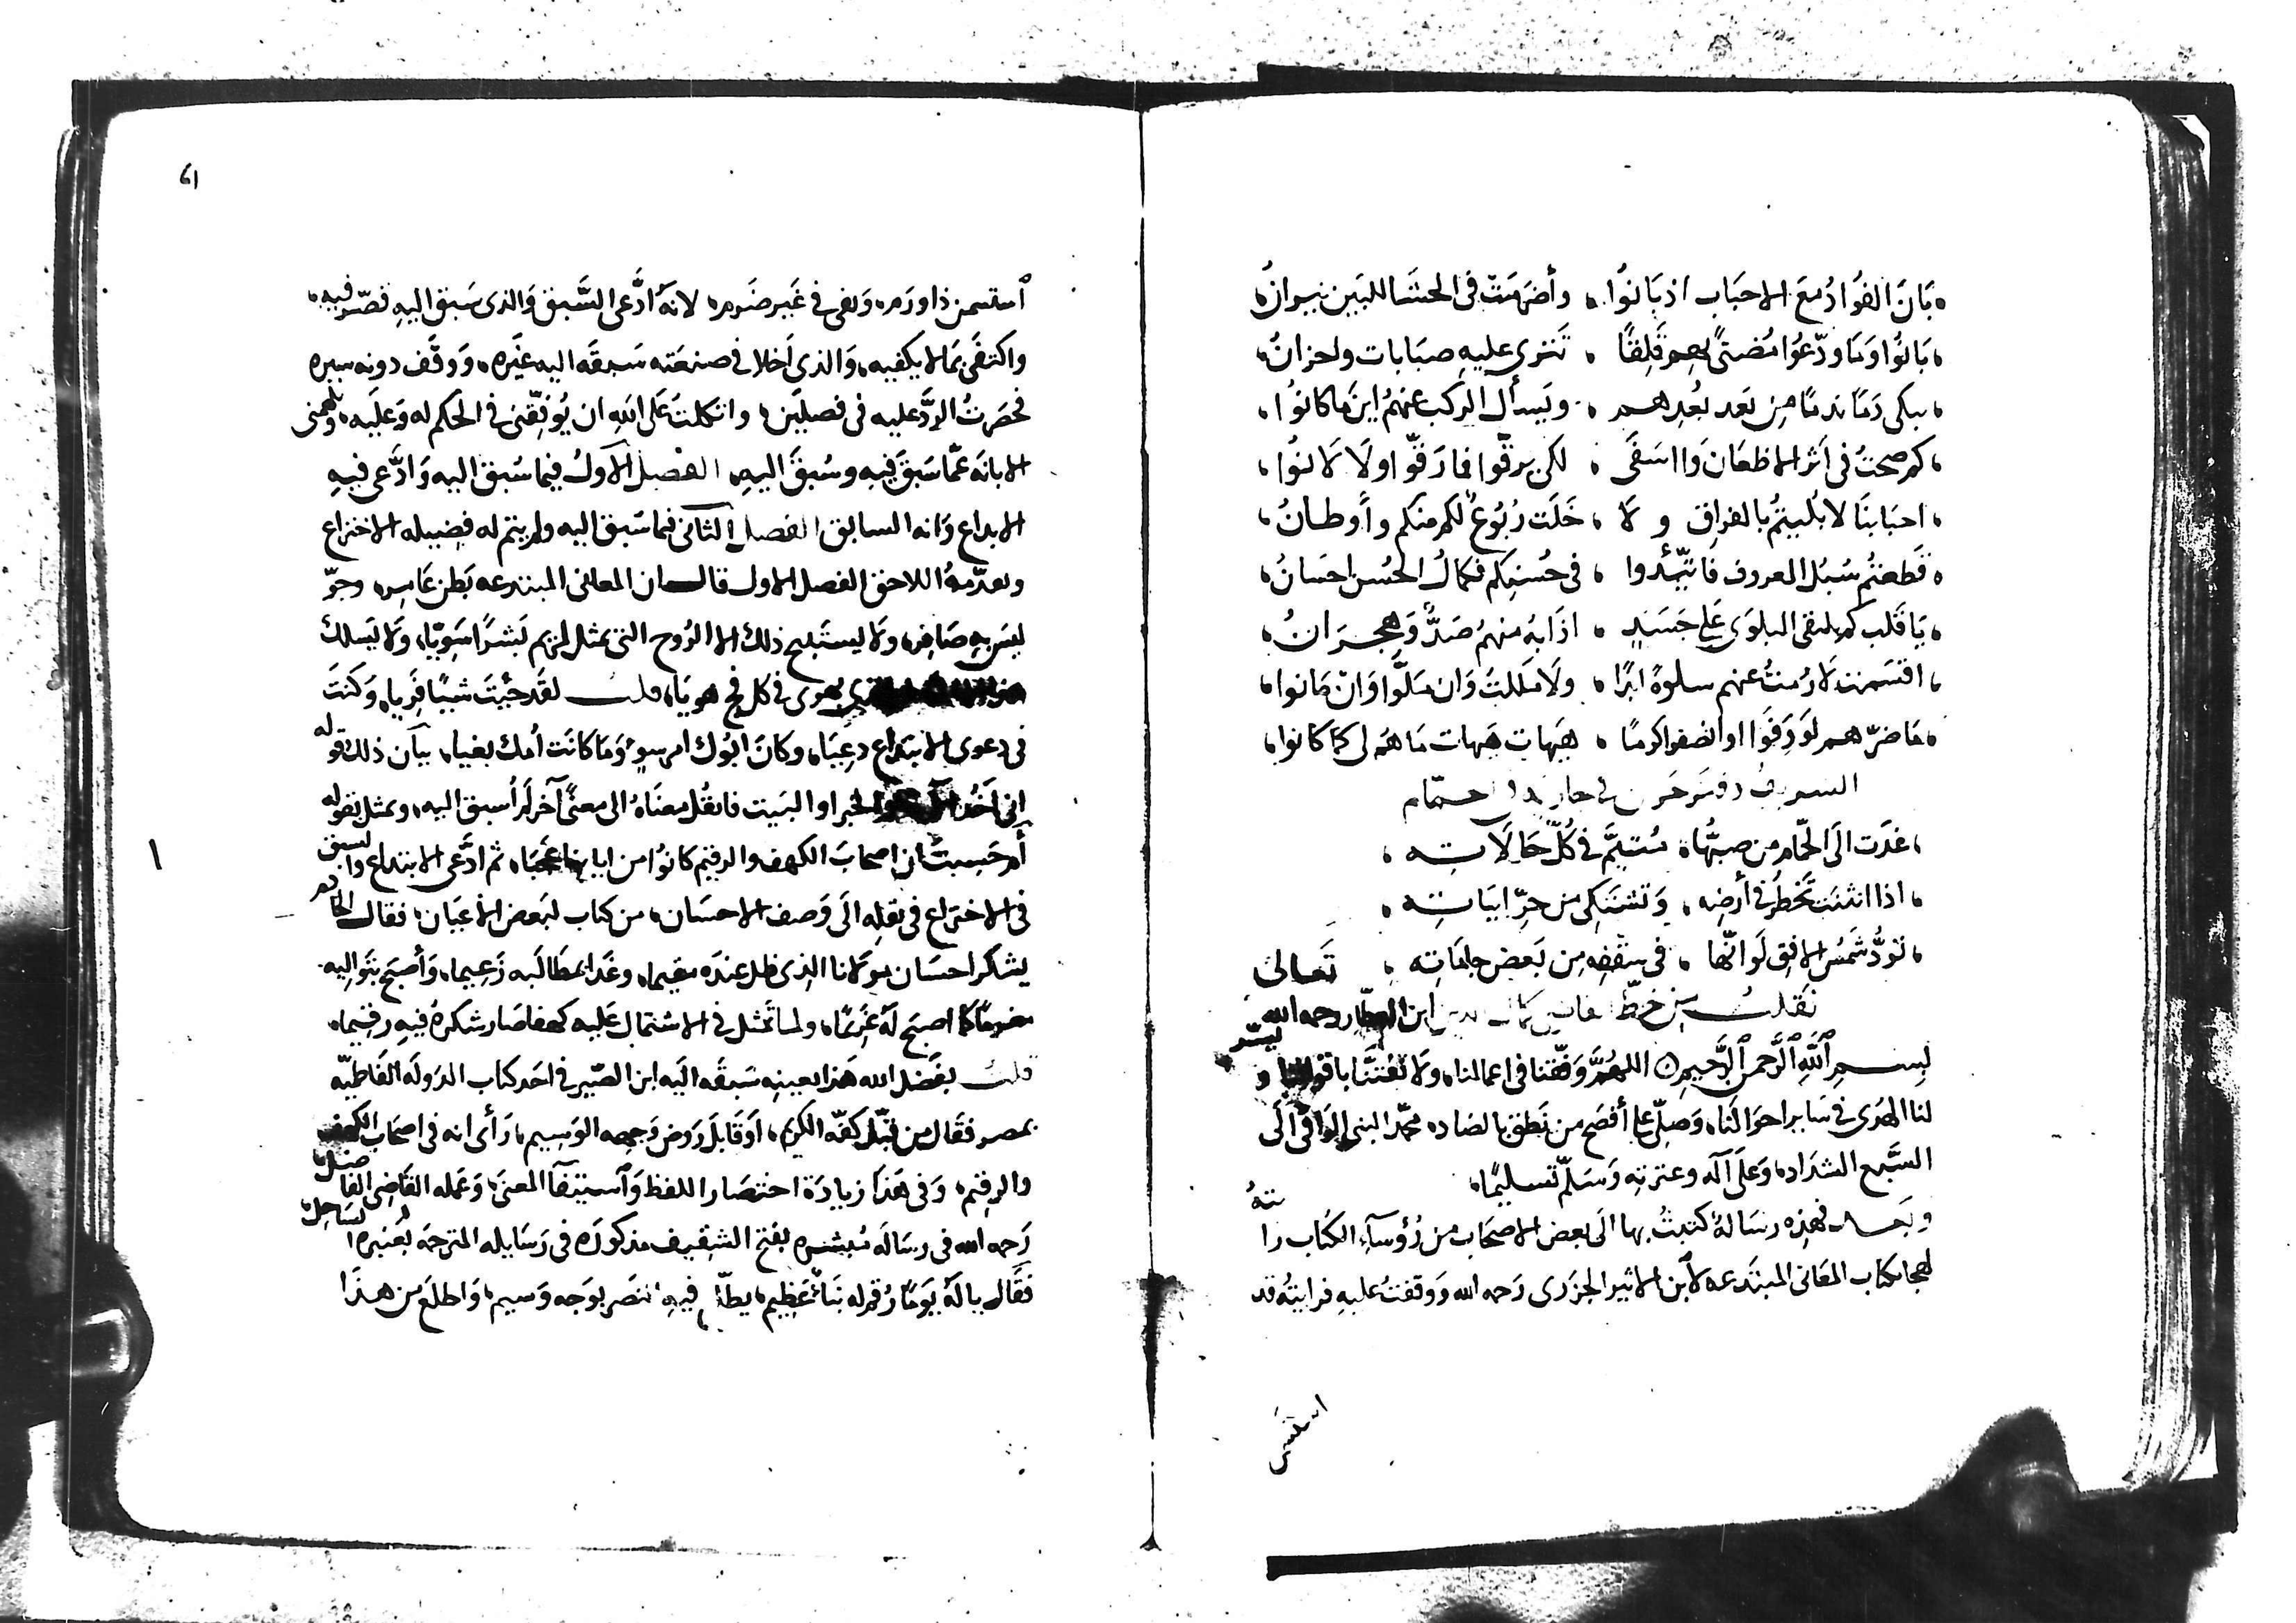 بَانَ الفُؤادُ معَ الاحبَاب اذ بَانوُا ، وأضرَمَت في الحشَا للبَين نيرانُ
بَانُوا وَمَا ودّعوُا مُضنىً بهم قَلِقًا ، تَترى عليهِ صبَابات واحزانُ
يبكى دَمًا ندمًا مِن بَعد بُعدِهم ، ويَسأل الركب عنهُمُ اينَ ما كانوُا
كم صحتُ في اَثر الاظعَان وَا اسَفَى ، لكى يرقّوا فما رَقّوا ولَا لَانوُا
احبَابنَا لا بُليتُم بالفراقِ و لا ، خَلَت رُبُوعٌ لكم منكم وأوطانُ
قَطعتُم سُبُل المعروف فاتّئدوا ، في حُسنِكم فكمالُ الحُسن احسَانُ
يَا قَلب كم يلتقى البلوَى عَلى جَسَدٍ ، اذَابهُ منهمُ صَدٌّ وَهِجرَانُ
اقسَمت لَا رُمتُ عنهم سلوةً ابَدًا ، ولَا مَللتُ وَان مَلَّوا وَانْ مَانوا
مَا ضرّهم لَو وَفَوا او انصفوا كرمًا ، هَيهَات هَيهات مَا هُم لى كمَا كانوا
في حمّام
غدَت الَى الحمّام من صبّهَا ، مُتيَّم في كُلّ حَالَاته
اذا انثنَت تَخطُر في أرضِه ، وَتشتكى من حرِّ ابيَاته
تَودُّ شَمسُ الافق لَو انّها ، في سَقفِه مِن بَعض جاماته
نَقلتُ مِن خطّ ابن العطّار رحمه الله تَعالى
بِسمِ ٱللَّهِ ٱلرَّحمنِ ٱلرَّحيمِ اللهُمَّ وَفّقنا في اعمالنا ، ولَا تَفتنَّا باقوالنا و يسّر
لنا الهدَى في سَاير احوَالنَا ، وَصلّ على أفصَح من نَطق بالضاد ، محمّد النبي الوَافى الَى
السَّبع الشدَاد ، وَعلَى آله وعترته وَسَلّم تسليمًا
وبَعد فهَذِه رسَالةٌ كتبتُ بها الَى بعض الاصحَاب من رُؤسَآء الكُتاب را
لهجا بكتاب المعَانى المبتَدعه لابن الاثير الجَزرى رَحمه الله وَوقفتُ عليهِ فرايتهُ قد
استسمن
61
ٱستسمن ذا ورَم ، وَنفَى في غَير ضَرم ، لانهُ ادَّعى السَّبق وَالذى سَبق اليهِ قصّر فيه
واكتفَى بمَا لا يكفيه ، وَالذى اَخلا في صنعَته سَبقَه اليه غَيره ، وَوقَف دونه سيره
فحصَرتُ الردَّ عليه في فصليَن ، واتكلتُ عَلى اللهِ ان يُوفّقنى في الحكم له وَعليَه ، ويلهمنى
الابانَه عَمّا سَبقَ فيه وسُبقَ اليهِ ، الفَصل الاَولُ فيما سُبق اليه وَادَّعى فيهِ
الابداع وَانه السابق الفصل الثانى فما سَبق اليه ولم يتم له فضيله الاختراع
وبعدّمهُ اللاحق الفصل الاول قال ان المعانى المبتدعه بَطن عَامر وجوّ
ليسَ بهِ صَافر ، ولَا يستَبيح ذلك الا الرُوح التى تمثل لمريم بَشرًا سَوِيّا ، ولَا يَسلك
يهوى في كل فج هوِيّا ، قلت لقَد جئتَ شيئًا فَرِيا ، وَكنتَ
في دعوى الابتداع دعِيّا ، وكانَ ابُوك امرَ سوءٍ وَمَا كانَت اُمك بغيا ، بيَان ذلك قوله
انى آخُذ الخبر او البَيت فانقُل معنَاهُ الى معنًى آخر لَم اُسبق اليه ، ومثل بقوله
أم حَسبتَ ان اصحابَ الكهف والرقيم كانوُا من اياتنا عَجبَا ، ثم ادَّعى الابتداع والسبق
في الاختراع في نقلِه الَى وَصف الاحسَان ، من كتاب لبَعض الاعيَان ، فقال الخادم
يشكر احسَان مولَانا الذى ظل عندَه مقيما ، وغدَا بمطَالَبه زَعِيما ، وَأصبَح بتَواليه
مغرمًا كما اصبَح لَهُ غَريمًا ، ولما تمثل في الاشتمال عليه كهفا صَار شكرهُ فيهِ رقيمًا
قلت بفَضل الله هَذا بعينهِ سَبقَه اليَه ابن الصّيرفى احَد كتاب الدَولَه الفَاطميّه
بمصر فقَال من قبَّل كفّه الكريم ، اَو قَابلَ رَوض وَجهه الوَسيم ، رَأى انه في اصحَاب الكهف
والرقيم ، وَفي هَذا زيادَة اختصَار اللفظ وَٱستيفآ المعنَى ، وَعمله القَاضى الفَاضل
رَحمه الله في رسَالَه مُبشره بفتح الشقيف مذكورَه في رَسَايله المترجمَه بُعنبره الساحل
فقَال يا لَهُ يَومًا رُقم له نَبَأٌ عَظيم ، يطلّ فيهِ نَضر بوَجه وَسيم ، وَاطلعَ من هذَا